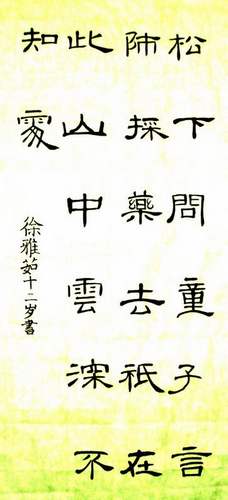 松下問童子言
師採藥去祇在
此山中雲深不
知處
徐雅茹十二岁書